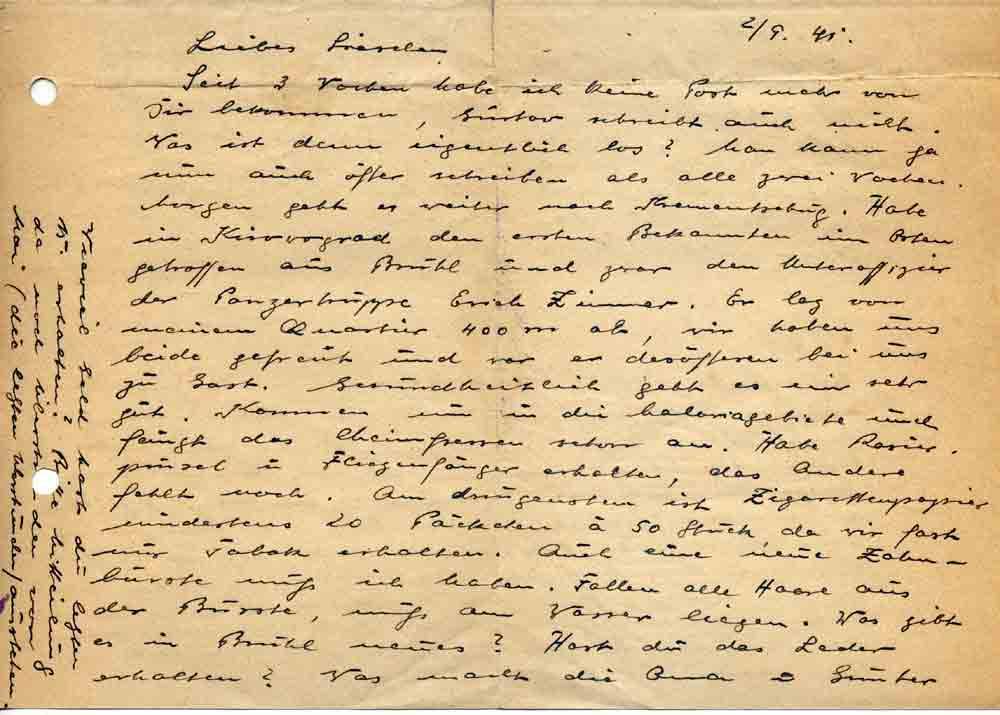 2/9. 41.
Liebes Lieschen
Seit 3 Wochen habe ich keine Post mehr von
Dir bekommen, Günter schreibt auch nicht.
Was ist denn eigentlich los? Man kann ja
nun auch öfter schreiben als alle zwei Wochen.
Morgen geht es weiter nach Krementschug. Habe
in Kirovograd den ersten Bekannten im Osten
getroffen aus Brühl und zwar den Unteroffizier
der Panzertruppe Erich Zimmer. Er lag von
meinem Quartier 400 m ab, wir haben uns
beide gefreut und war er desöfteren bei uns
zu Gast. Gesundheitlich geht es mir sehr
gut. Kommen nun in die Malariagebiete und
fängt das Chininfressen schon an. Habe Rasier-
pinsel u Fliegenfänger erhalten, das Andere
fehlt noch. Am dringensten ist Zigarettenpapier
mindestens 20 Päckchen à 50 Stück da wir fast
nur Tabak erhalten. Auch eine neue Zahn-
bürste muß ich haben. Fallen alle Haare aus
der Bürste, muß am Wasser liegen. Was gibt
es in Brühl neues? Hast du das Leder
erhalten? Was macht die Oma u Günter
Wieviel Geld hast du letzten
M. erhalten? Bitte Mitteilung
da noch Überstunden von
Mai (die letzten Überstunden) ausstehen.